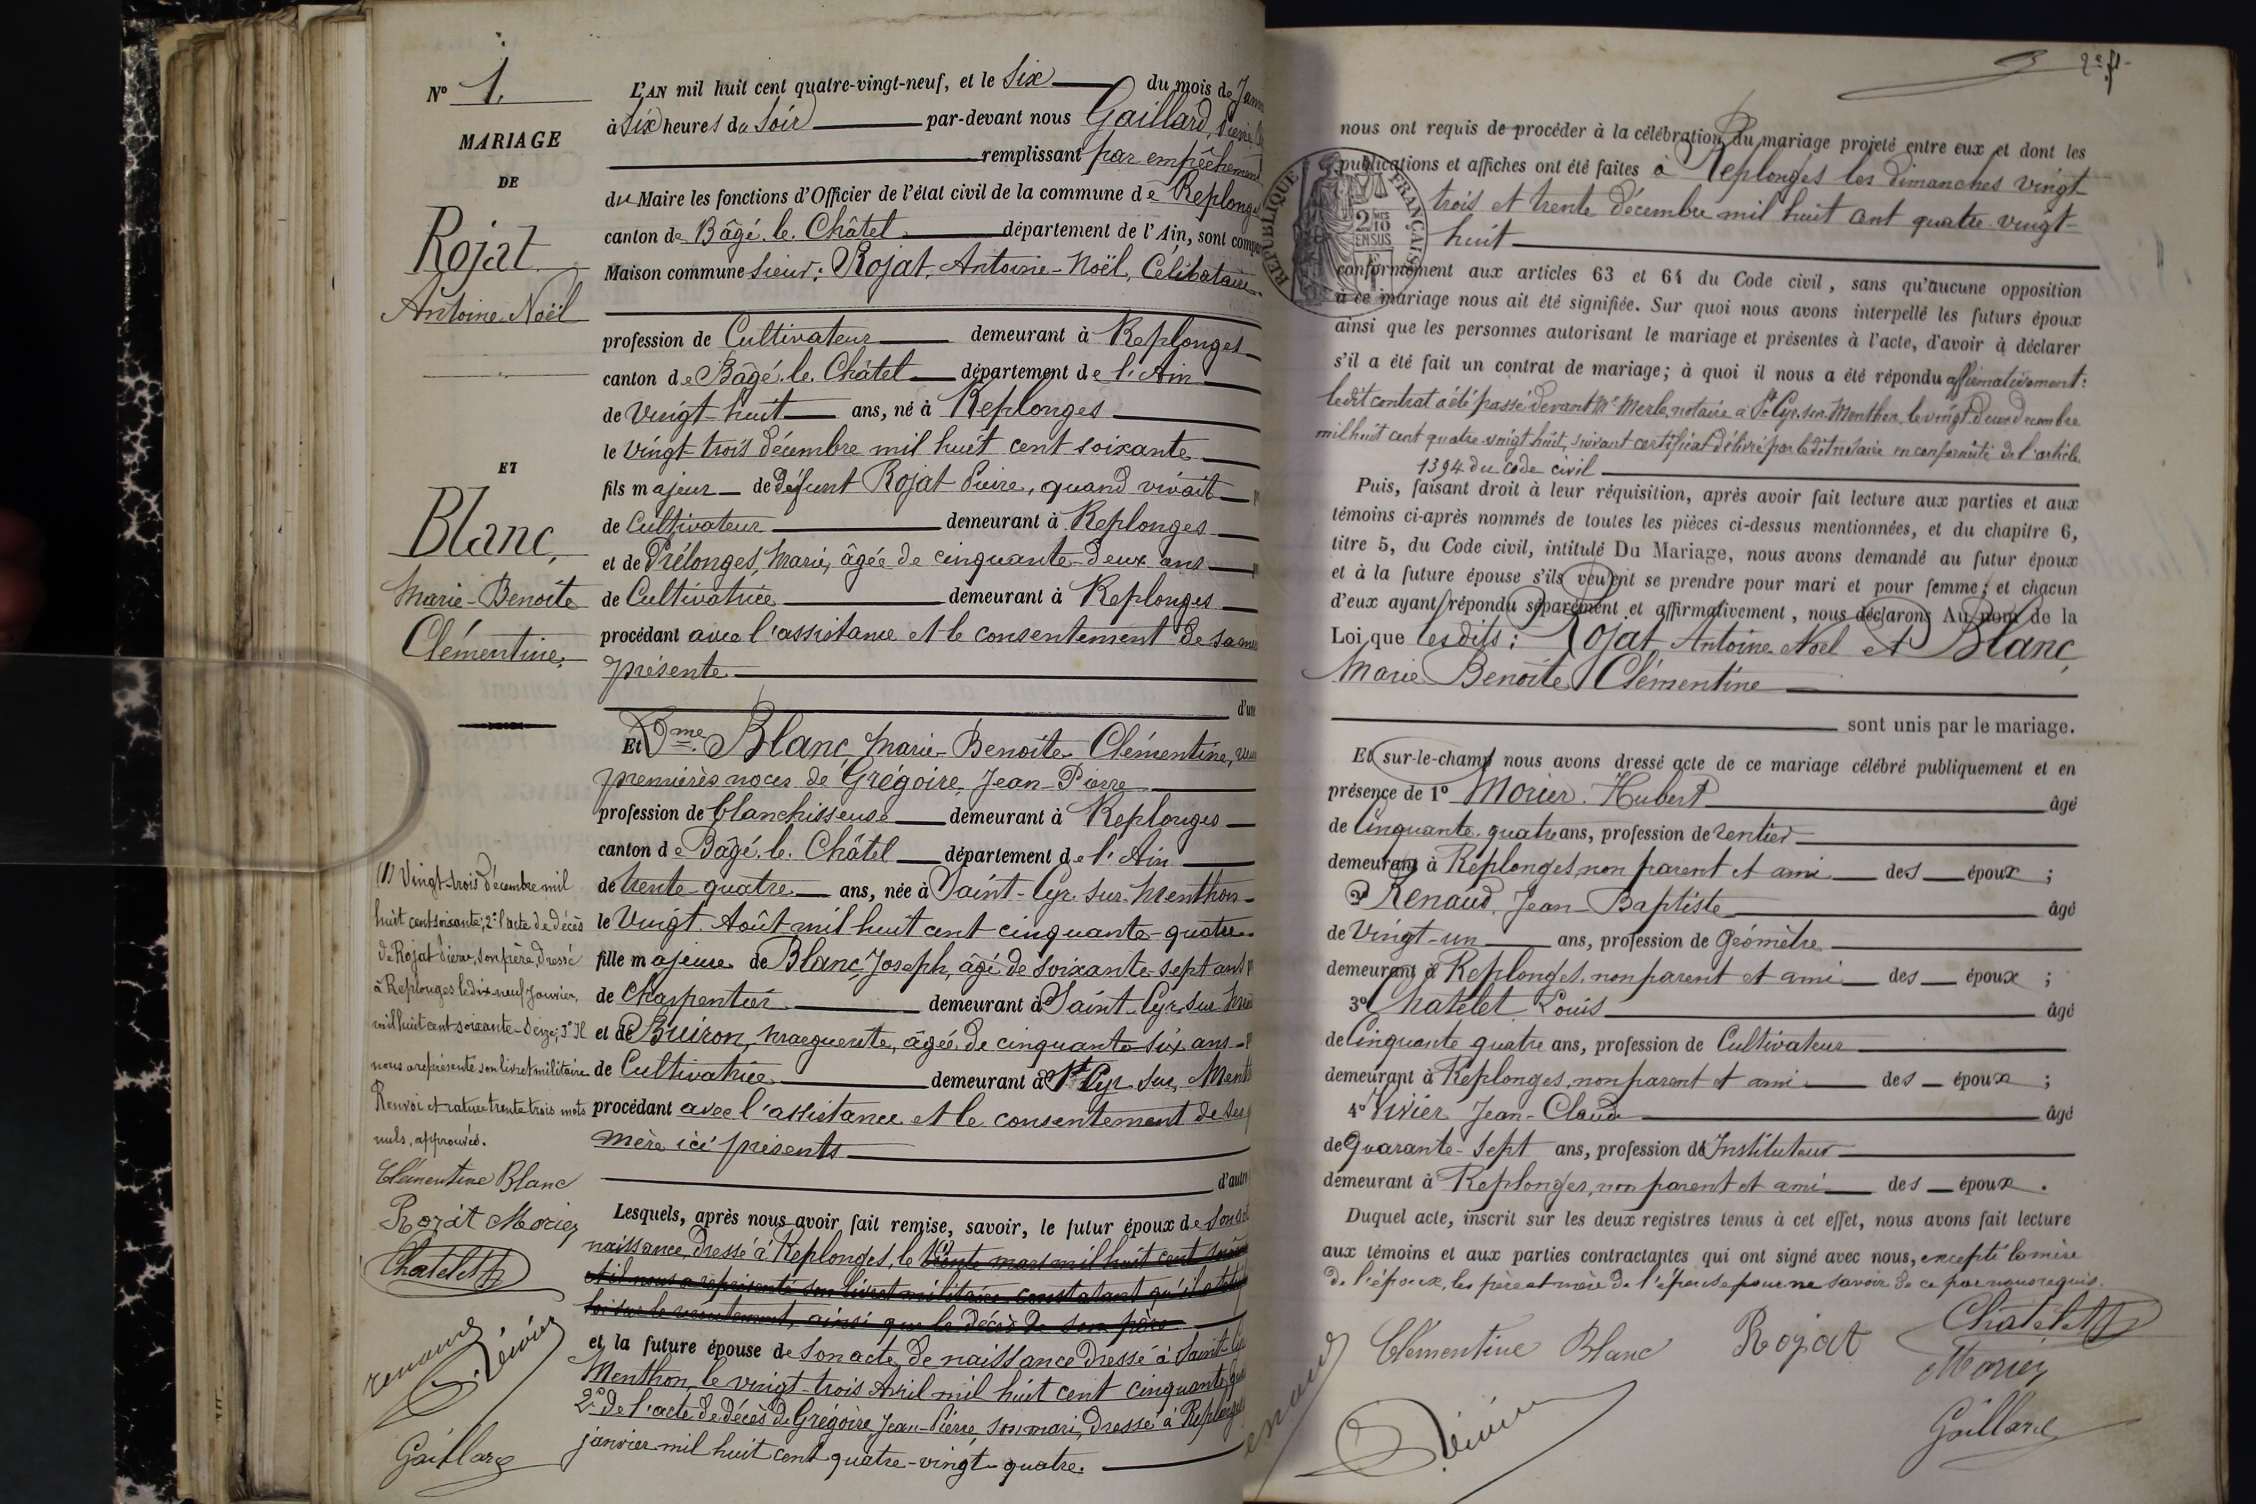 N° 1.
MARIAGE
DE
Rojat
Antoine Noël
ET
Blanc,
Marie-Benoîte
Clémentine.
(1) Vingt-trois décembre mil
huit cent soixante; 2° l'acte de décès
de Rojat Pierre, son père, dressé
à Replonges le dix-neuf Janvier,
mil huit cent soixante-seize; 3° Il
nous a représenté son livret militaire
Renvoi et rature trente trois mots
nuls, approuvés.
Clémentine Blanc
Rojat Morier
Chatelet
renaud
Vivier
Gaillard
L'AN mil huit cent quatre-vingt-neuf, et le Six du mois de Janv
à Six heures du Soir par-devant nous Gaillard, Pierre
remplissant par empêchement
du Maire les fonctions d'Officier de l'état civil de la commune de Replonge
canton de Bâgé-le-Châtel département de l'Ain, sont comp
Maison commune sieur: Rojat, Antoine-Noël, Célibataire
profession de Cultivateur demeurant à Replonges
canton de Bâgé-le-Châtel département de l'Ain
de Vingt-huit ans, né à Replonges
le Vingt-trois décembre mil huit cent soixante
fils majeur de Défunt Rojat Pierre, quand vivait
de Cultivateur demeurant à Replonges
et de Prélonges, Marie, âgée de cinquante-deux ans
de Cultivatrice demeurant à Replonges
procédant avec l'assistance et le consentement de sa
présente
d'un
Et Dme Blanc, Marie-Benoîte-Clémentine,
premières noces de Grégoire, Jean-Pierre
profession de blanchisseuse demeurant à Replonges
canton de Bâgé-le-Châtel département de l'Ain
de trente-quatre ans, née à Saint-Cyr-sur-Menthon
le Vingt Août mil huit cent cinquante-quatre
fille majeure de Blanc Joseph, âgé de soixante-sept ans
de Charpentier demeurant à Saint-Cyr-sur-
et de Buiron, Marguerite, âgée de cinquante-six ans
de Cultivatrice demeurant à St Cyr-sur-Menth
procédant avec l'assistance et le consentement de ses
mère ici présents
d'autre
Lesquels, après nous avoir fait remise, savoir, le futur époux de son
naissance, dressé à Replonges, le trente mars mil huit cent
et il nous a représenté son livret militaire constatant qu'il
loi sur le recrutement, ainsi que le décès de son père
et la future épouse de son acte de naissance dressé à Saint-
Menthon, le vingt-trois Avril mil huit cent cinquante
2° de l'acte de décès de Grégoire, Jean-Pierre, son mari, dressé à Replonges
janvier mil huit cent quatre-vingt-quatre.
2e ft
nous ont requis de procéder à la célébration du mariage projeté entre eux et dont les
publications et affiches ont été faites à Replonges les dimanches vingt
trois et trente décembre mil huit cent quatre-vingt-
huit
RÉPUBLIQUE FRANÇAISE
2/10 EN SUS
conformément aux articles 63 et 64 du Code civil, sans qu'aucune opposition
à ce mariage nous ait été signifiée. Sur quoi nous avons interpellé les futurs époux
ainsi que les personnes autorisant le mariage et présentes à l'acte, d'avoir à déclarer
s'il a été fait un contrat de mariage; à quoi il nous a été répondu affirmativement:
ledit contrat a été passé devant Me Merle, notaire à St Cyr-sur-Menthon, le vingt-deux décembre
mil huit cent quatre vingt huit, suivant certificat délivré par ledit notaire en conformité de l'article
1394 du Code civil
Puis, faisant droit à leur réquisition, après avoir fait lecture aux parties et aux
témoins ci-après nommés de toutes les pièces ci-dessus mentionnées, et du chapitre 6,
titre 5, du Code civil, intitulé Du Mariage, nous avons demandé au futur époux
et à la future épouse s'ils veulent se prendre pour mari et pour femme; et chacun
d'eux ayant répondu séparément et affirmativement, nous déclarons Au nom de la
Loi que lesdits: Rojat Antoine Noël et Blanc
Marie Benoîte Clémentine
sont unis par le mariage.
Et sur-le-champ nous avons dressé acte de ce mariage célébré publiquement et en
présence de 1° Morier Hubert âgé
de Cinquante-quatre ans, profession de rentier
demeurant à Replonges, non parent et ami des époux;
2° Renaud, Jean-Baptiste âgé
de Vingt-un ans, profession de Géomètre
demeurant à Replonges, non parent et ami des époux;
3° Chatelet Louis âgé
de Cinquante quatre ans, profession de Cultivateur
demeurant à Replonges, non parent et ami des époux;
4° Vivier Jean-Claude âgé
de Quarante-sept ans, profession de Instituteur
demeurant à Replonges, non parent et ami des époux.
Duquel acte, inscrit sur les deux registres tenus à cet effet, nous avons fait lecture
aux témoins et aux parties contractantes qui ont signé avec nous, excepté la mère
de l'époux, les père et mère de l'épouse pour ne savoir de ce par nous requis.
Clémentine Blanc Rojat Chatelet
Morier
renaud
Vivier
Gaillard